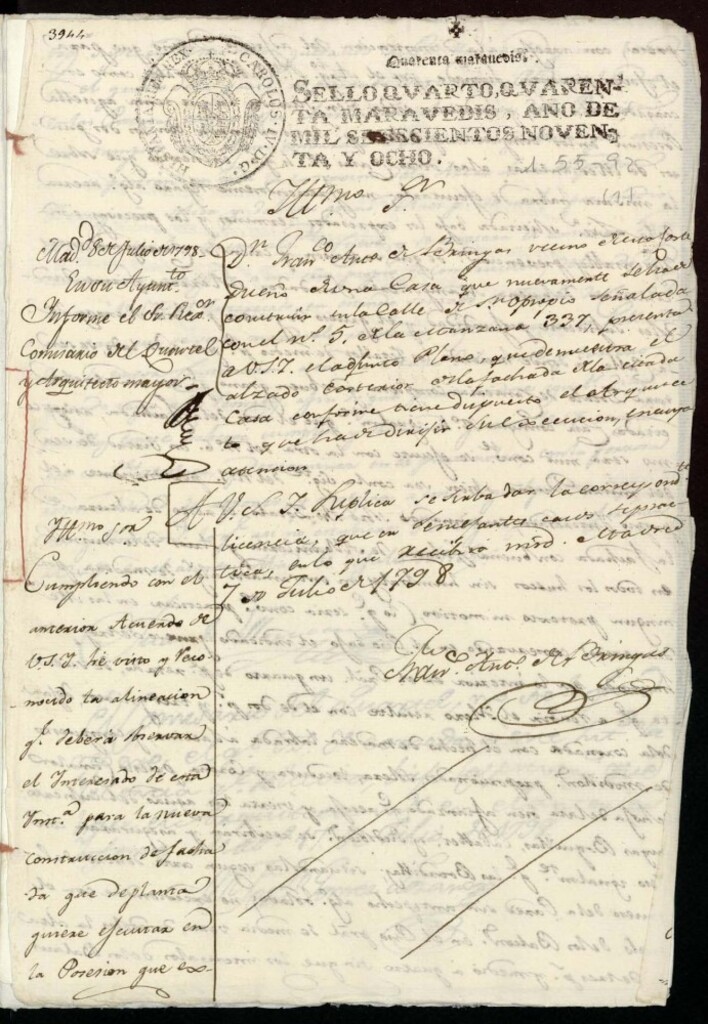 3944
Quarenta maravedis.
SELLO QVARTO, QVAREN-
TA MARAVEDIS, ANO DE
MIL SETECIENTOS NOVEN-
TA Y OCHO.
CAROLUS IV D G
1-55-92
Yllmo. Sr.
Dn. Franco. Anto. de Bringas vecino de esta Corte
Dueño de una Casa que nuevamente se ha de
construir en la Calle de Sn. Opropio señalada
con el no. 5. de la Manzana 337, presenta
a V.S.Y. el adjunto Plano, que demuestra el
alzado exterior de la fachada de la citada
Casa conforme tiene dispuesto el Arquitec-
to que ha de dirigir su execucion, en cuya
atencion
A V.S.Y. suplica se sirba dar la correspondte.
licencia, que en semejantes casos se prac-
tica, en lo que recibirá mrd. Madrid
7 de Julio de 1798
Franco. Anto. de Bringas
Madd. 8 de Julio de 1798.
En su Ayuntto.
Informe el Sr. Rexor.
Comisario del Quartel
y Arquitecto mayor
Yllmo. Sor.
Cumpliendo con el
anterior Acuerdo de
V.S.Y. he visto y reco-
nocido la alineacion
q. deberá observar
el Interesado de esta
Ynsta. para la nueva
construccion de facha-
da que de planta
quiere executar en
la Posesion que ex-